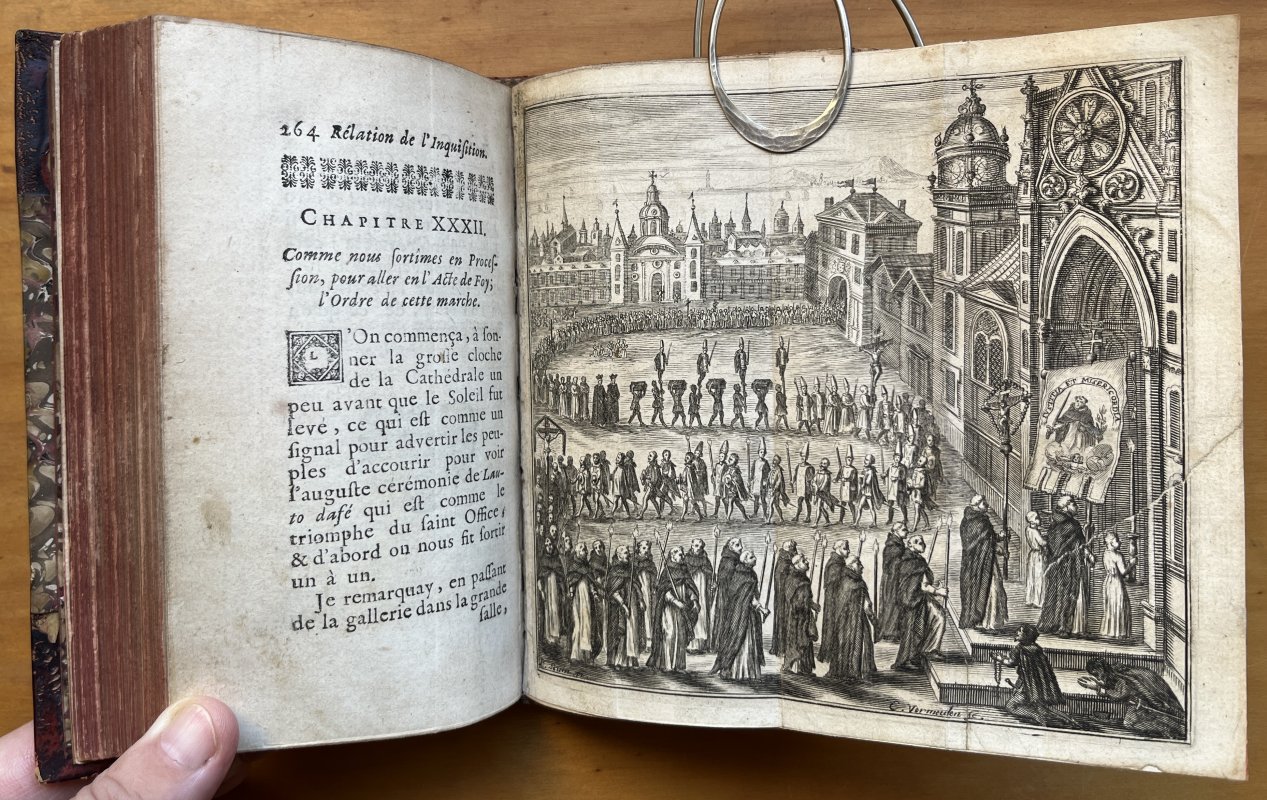 264 Rélation de l'Inquiſition.
CHAPITRE XXXII.
Comme nous ſortimes en Proceſ-
ſion, pour aller en l'Acte de Foy;
l'Ordre de cette marche.
L'On commença, à ſon-
ner la groſſe cloche
de la Cathédrale un
peu avant que le Soleil fut
levé, ce qui eſt comme un
ſignal pour advertir les peu-
ples d'accourir pour voir
l'auguſte cérémonie de Lau-
to dafé qui eſt comme le
triomphe du ſaint Office;
& d'abord on nous fit ſortir
un à un.
Je remarquay, en paſſant
de la gallerie dans la grande
ſalle,
ET MISERICORDIA
C. Vermeulen sc.